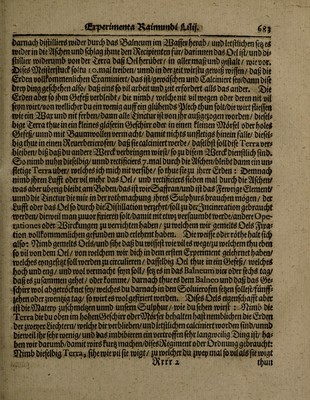 Experimenta Raimundi Lilij. 683
darnach distilliers wider durch das Balneum im Wasser herab / und letstlichen setz es
wider in die Aschen und schlag ihme den Recipienten für / darinnen das Oel ist / und di-
stillier widerumb von der Terra daß Oel herüber / in aller maß und gestalt / wie vor.
Dises Meisterstuck soltu 10. mal treiben / unnd in der zeit wirstu gewiß wissen / daß die
Erden vollkommenlichen Examiniert / das ist gewaschen und Calciniert sey / dann dise
drey ding geschehen also / daß eins so vil arbeit und zeit erfordert als das ander. Die
Erden aber so ihm Gefeß verbleibt / die nimb / welche nit vil wegen oder deren nit vil
seyn wirt / von welcher du ein wenig auff ein glühends Blech thun solt / die wirt fliessen
wie ein Wax und nit ferben / dann alle Tinctur ist von ihr außgezogen worden / diesel-
bige Terra thue in ein kleines gläserin Geschirr oder in einen kleinen Mörser oder holes
Gefeß / unnd mit Baumwollen vermacht / damit nichts unfletigs hinein falle / diesel-
big thue in einen Reuerberierofen / daß sie calciniert werde / daselbst soll dise Terra ver-
bleiben / biß daß du ander Werck verbringen wirst / so zu disem Werck dienstlich sind.
So nimb nuhn dieselbig / unnd rectificiers 7. mal durch die Aschen / bleibt dann ein un-
fletige Terra uber / welche ich mich nit versihe / so thue sie zu jhrer Erden: Demnach
nimb jhren Lufft oder vil mehr das Oel / und rectificiers sieben mal durch die Aschen /
was aber uberig bleibt am Boden / das ist wie Saffran / und ist das Fewrige Element
unnd die Tinctur die wir in der rothmachung jhres Sulphurs brauchen mögen / der
Lufft oder das Oel so durch die Distillation vergehet soll zu der Inceration gebraucht
werden / dieweil man zuuor figieren solt / damit nit etwz versaumbt werde / andere Ope-
rationes oder Wirckungen zu verrichten haben / zu welchem wir gemelts Oels Fixa-
tion vollkommenlichen gefunden und erlehrnt haben. Die weisse oder röthe halt sich
also: Nimb gemelts Oels / und sihe daß du wissest wie vil es wege / zu welchem thu eben
so vil von dem Oel / von welchem wir dich in dem ersten Experiment gelehrnet haben /
welches eingesetzt soll werden zu circulieren / dasselbig Oel thue in ein Gefeß / welches
hoch und eng / und wol vermacht seyn soll / setz es in das Balneum vier oder sechs tag /
daß es zusammen gehet / oder komme / darnach thue es dem Balneo und daß das Ge-
schirr wol abgetröcknet sey / welches du darnach in den Solinierofen setzen sollest fünff-
zehen oder zwentzig tag / so wirt es wol gefriert werden. Dises Oels eigenschafft aber
ist die Matery zuschmeltzen unnd unsern Sulphur / wie du schen wirst: Nimb die
Terra die du oben im hohen Geschirr oder Mörser behalten hast nemblichen die Erden
der zweyer Liechtern / welche dir verblieben / und letstlichen calciniert worden sind / unnd
dieweil ihr sehr wenig / und das imbibieren ein vertrossen sehr langweilig Ding ist / ha-
ben wir darumb / damit wirs kurtz machen / dises Regiment oder Ordnung gebraucht:
Nimb dieselbig Terra, sihe wie vil sie wigt / zu welcher du zwey mal so vil als sie wigt
Rrrr 2 thun